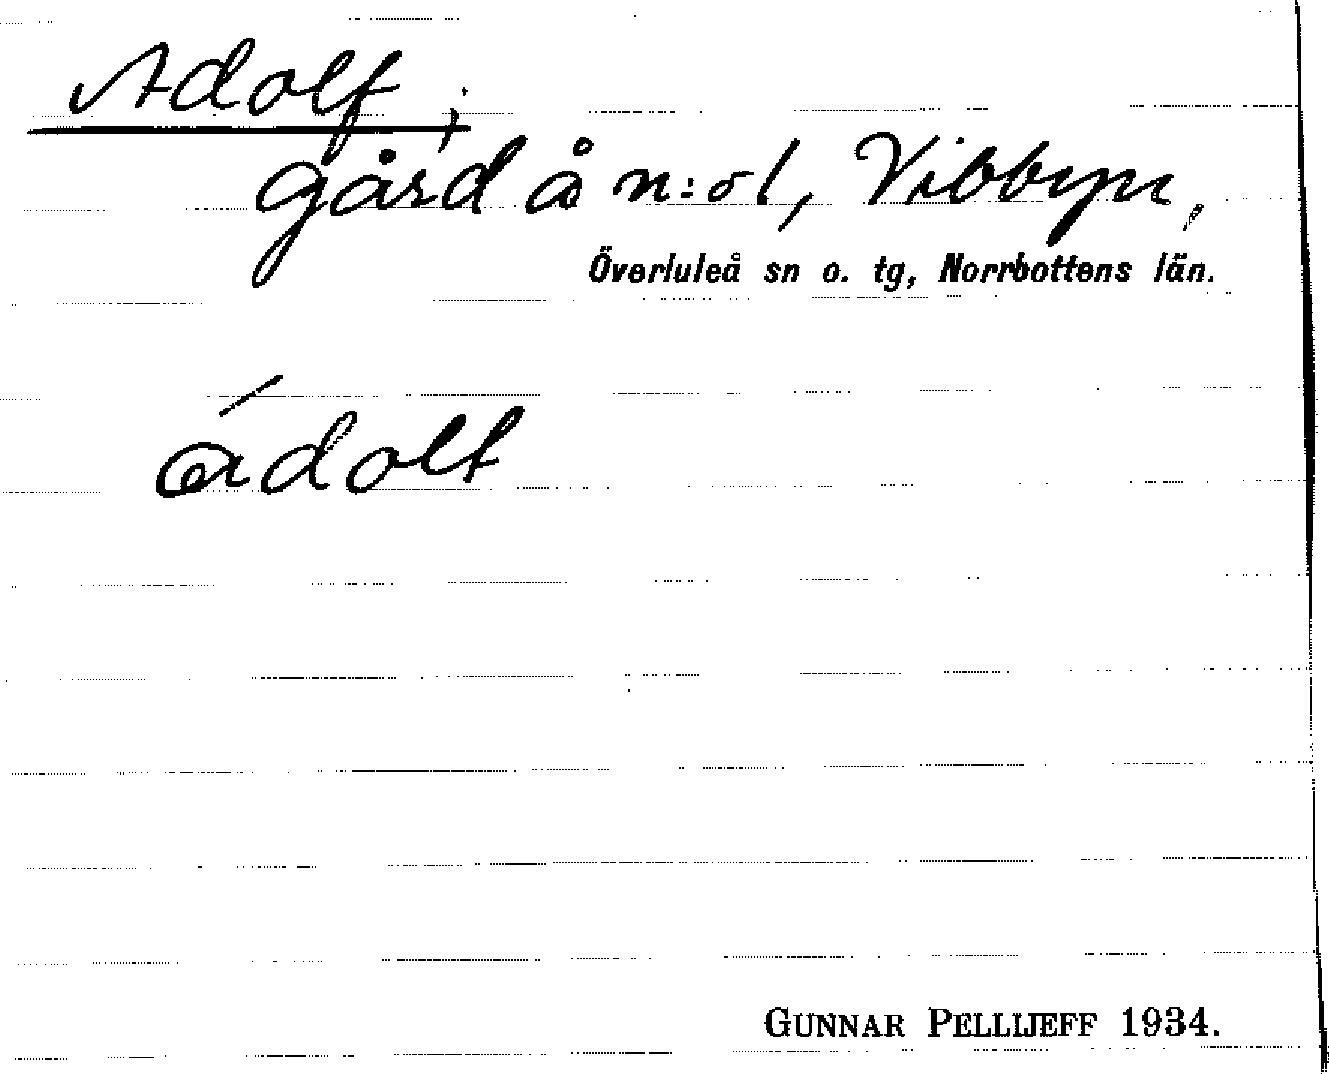 Adolf;
gård å n:o 1, Vibbyn,
Överluleå sn o. tg, Norrbottens län.
ádolf
GUNNAR PELLIJEFF 1934.